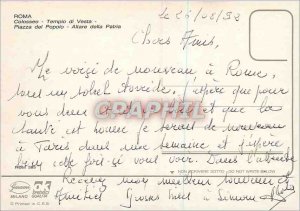 ROMA
Colosseo - Tempio di Vesta -
Piazza del Popolo - Altare della Patria
le 26/08/92
Chers Amis,
Me voici de nouveau à Rome,
sous un soleil torride. J'espère que pour
vous deux et que la
santé est bonne. Je serai de nouveau
à Paris dans une semaine et j'espère
bien cette fois ci vous voir. Dans l'attente
Recevez mon meilleur souvenir
Amitiés Grosses bises à Simone
CPAPHIL
NON SCRIVERE SOTTO - DO NOT WRITE BELOW